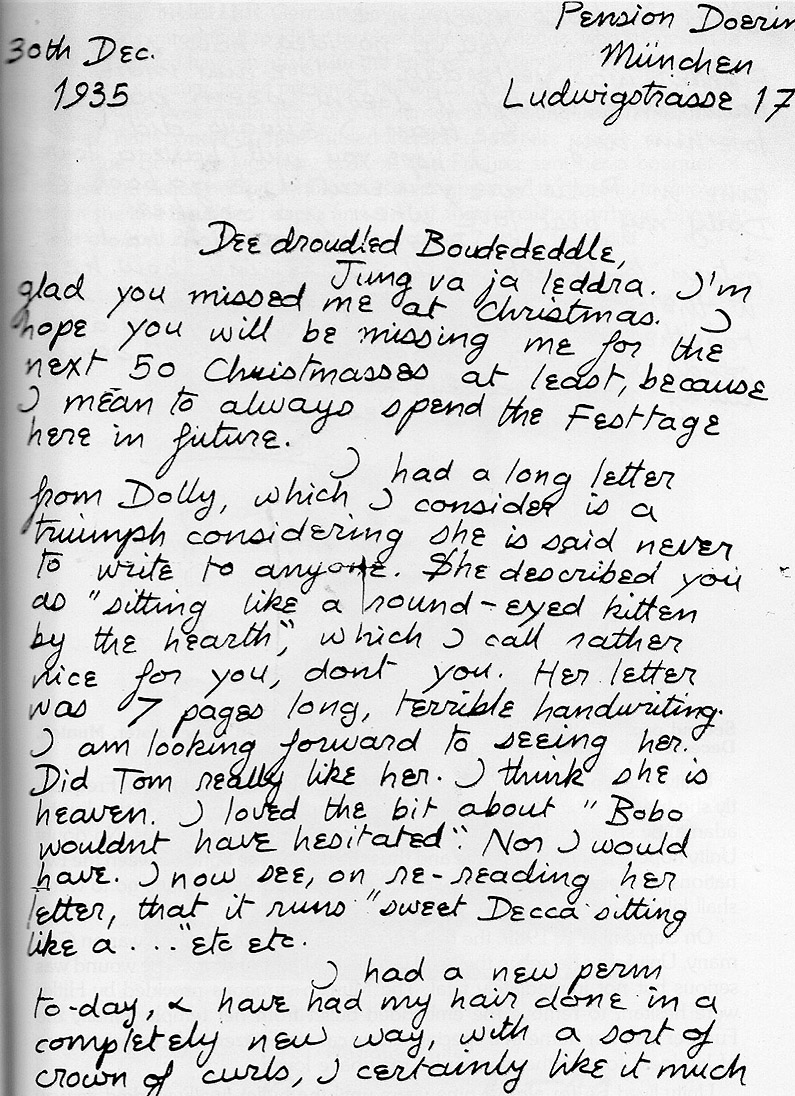 Pension Doerin
30th Dec.
München
1935
Ludwigstrasse 17
Dee droudled Boudededdle,
Jung va ja leddra. I'm
glad you missed me at Christmas. I
hope you will be missing me for the
next 50 Christmasses at least, because
I mean to always spend the Festtage
here in future.
I had a long letter
from Dolly, which I consider is a
triumph considering she is said never
to write to anyone. She described you
as "sitting like a round-eyed kitten
by the hearth", which I call rather
nice for you, dont you. Her letter
was 7 pages long, terrible handwriting.
I am looking forward to seeing her.
Did Tom really like her. I think she is
heaven. I loved the bit about "Bobo
wouldnt have hesitated". Nor I would
have. I now see, on re-reading her
letter, that it runs "sweet Decca sitting
like a ..." etc etc.
I had a new perm
to-day, & have had my hair done in a
completely new way, with a sort of
crown of curls, I certainly like it much